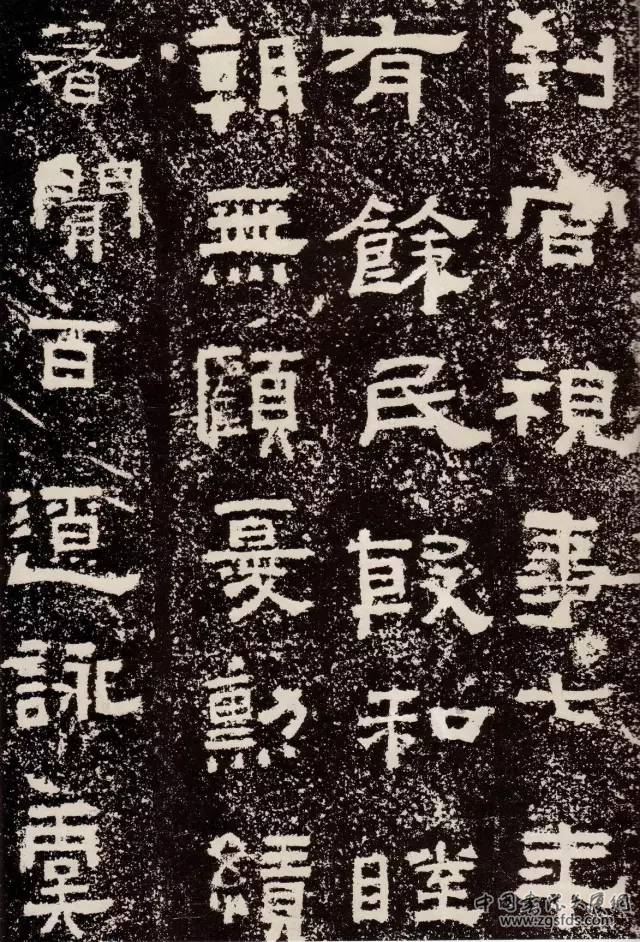 到官視事七年
有餘民殷和睦
朝無顧憂勳績
著聞百遼詠虞
www.zgsfds.com